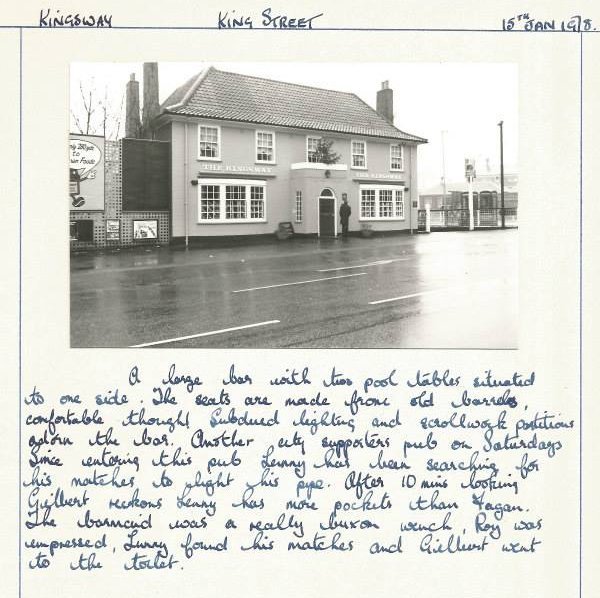 KINGSWAY KING STREET 15TH JAN 1978.
only 280 yds
to
Foods
THE KINGSWAY
THE KINGSWAY
A large bar with two pool tables situated
to one side. The seats are made from old barrels,
comfortable though! Subdued lighting and scrollwork partitions
adorn the bar. Another city supporters pub on Saturdays
Since entering this pub Lenny has been searching for
his matches to light his pipe. After 10 mins looking
Gillbert reckons Lenny has more pockets than Fagan.
The barmaid was a really buxon wench, Roy was
impressed, Lenny found his matches and Gillbert went
to the toilet.